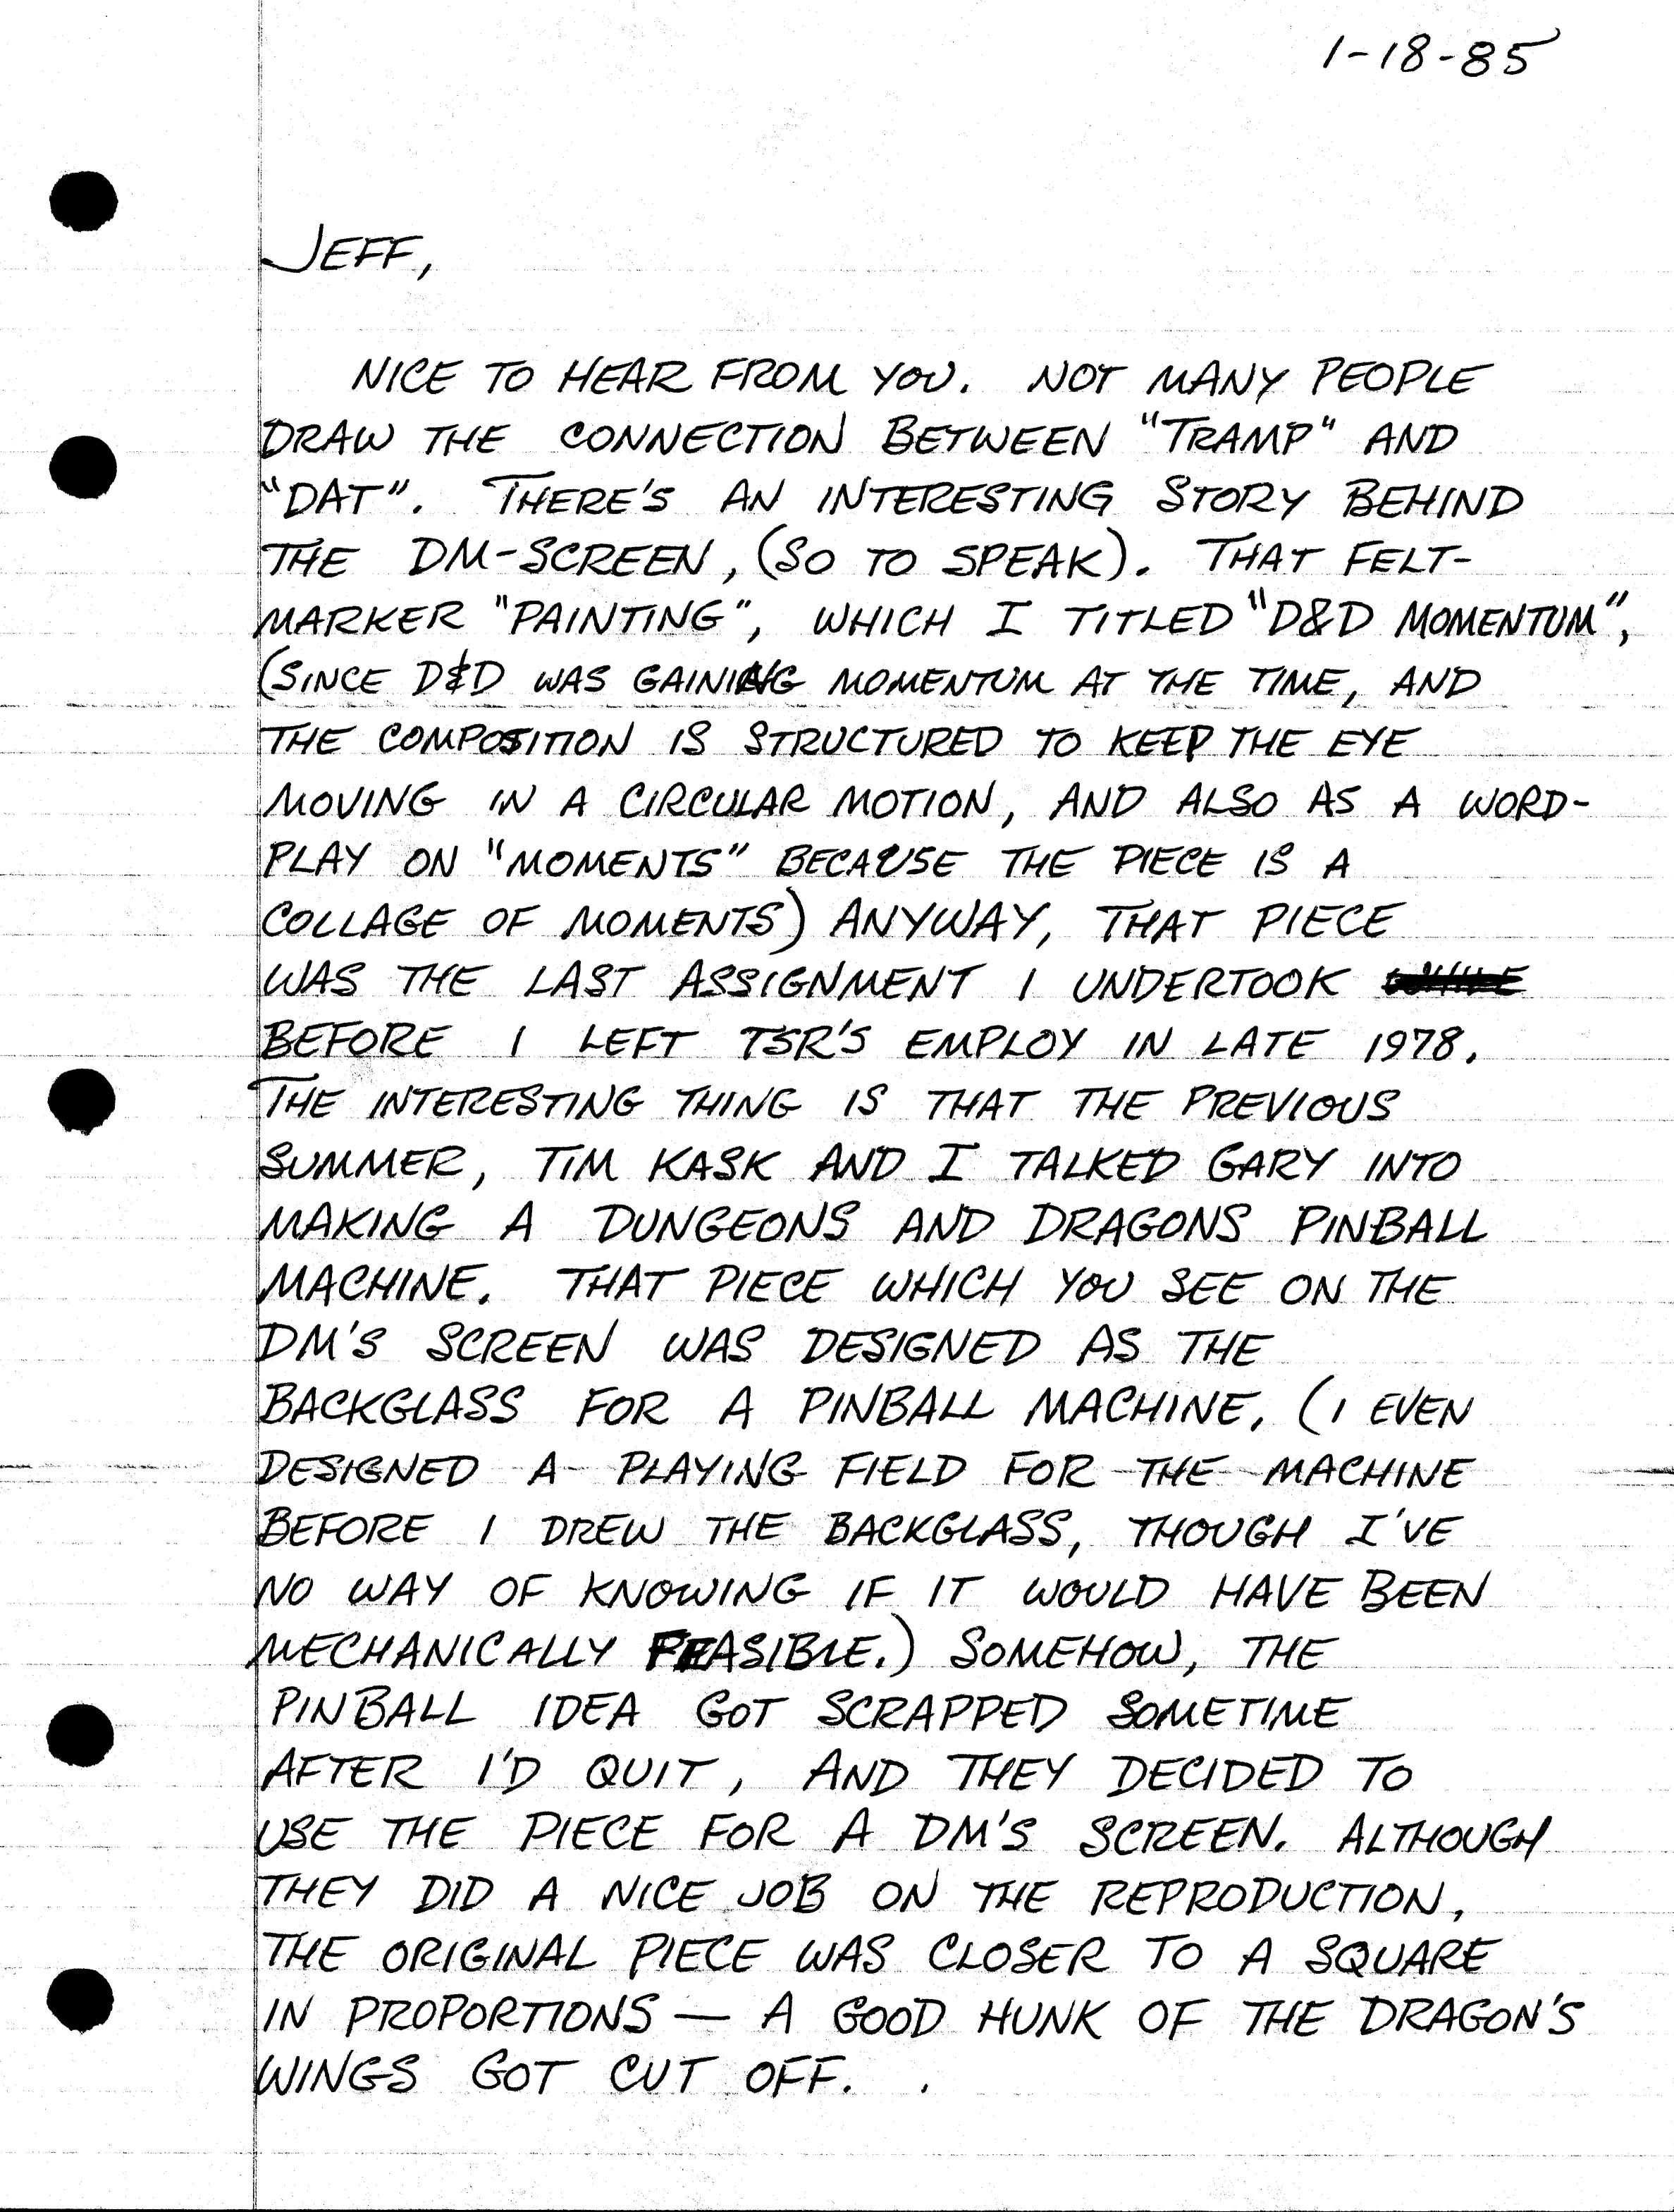 1-18-85
JEFF,
NICE TO HEAR FROM YOU. NOT MANY PEOPLE
DRAW THE CONNECTION BETWEEN "TRAMP" AND
"DAT". THERE'S AN INTERESTING STORY BEHIND
THE DM-SCREEN, (SO TO SPEAK). THAT FELT-
MARKER "PAINTING", WHICH I TITLED "D&D MOMENTUM",
(SINCE D&D WAS GAINING MOMENTUM AT THE TIME, AND
THE COMPOSITION IS STRUCTURED TO KEEP THE EYE
MOVING IN A CIRCULAR MOTION, AND ALSO AS A WORD-
PLAY ON "MOMENTS" BECAUSE THE PIECE IS A
COLLAGE OF MOMENTS) ANYWAY, THAT PIECE
WAS THE LAST ASSIGNMENT I UNDERTOOK
BEFORE I LEFT TSR'S EMPLOY IN LATE 1978.
THE INTERESTING THING IS THAT THE PREVIOUS
SUMMER, TIM KASK AND I TALKED GARY INTO
MAKING A DUNGEONS AND DRAGONS PINBALL
MACHINE. THAT PIECE WHICH YOU SEE ON THE
DM'S SCREEN WAS DESIGNED AS THE
BACKGLASS FOR A PINBALL MACHINE. (I EVEN
DESIGNED A PLAYING FIELD FOR THE MACHINE
BEFORE I DREW THE BACKGLASS, THOUGH I'VE
NO WAY OF KNOWING IF IT WOULD HAVE BEEN
MECHANICALLY FEASIBLE.) SOMEHOW, THE
PINBALL IDEA GOT SCRAPPED SOMETIME
AFTER I'D QUIT, AND THEY DECIDED TO
USE THE PIECE FOR A DM'S SCREEN. ALTHOUGH
THEY DID A NICE JOB ON THE REPRODUCTION,
THE ORIGINAL PIECE WAS CLOSER TO A SQUARE
IN PROPORTIONS — A GOOD HUNK OF THE DRAGON'S
WINGS GOT CUT OFF.